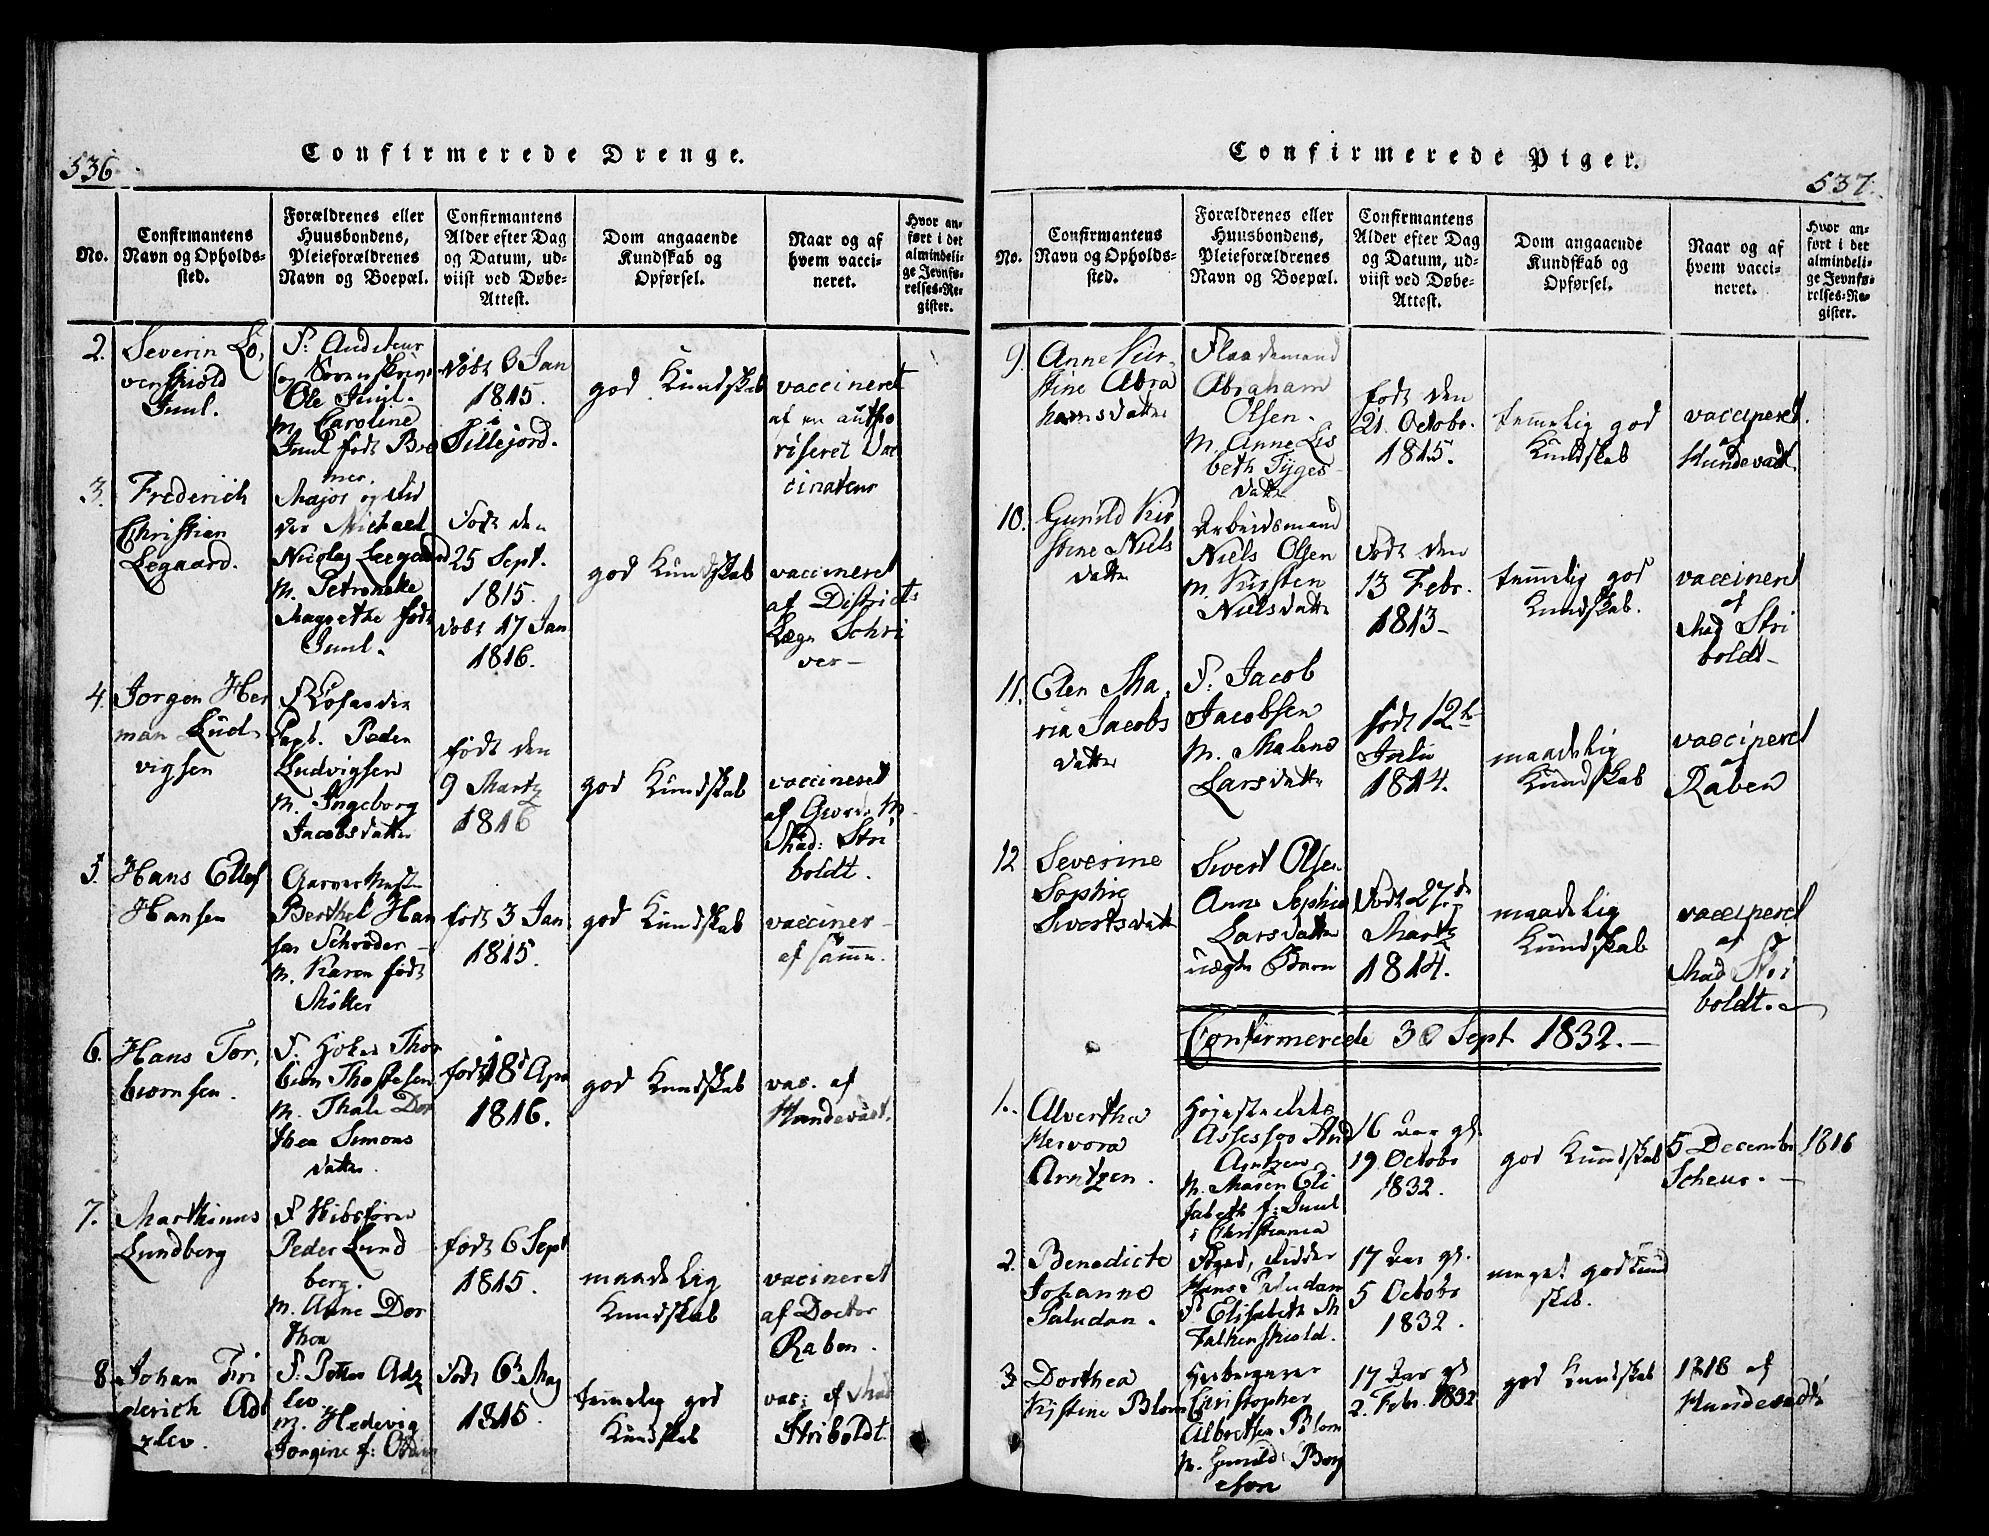 536
Confirmerede Drenge.
No.
Confirmantens
Navn og Opholds-
sted.
Forældrenes eller
Huusbondens,
Pleieforældrenes
Navn og Boepæl.
Confirmantens
Alder efter Dag
og Datum, ud-
viist ved Døbe-
Attest.
Dom angaaende
Kundskab og
Opførsel.
Naar og af
hvem vacci-
neret.
Hvor an-
ført i det
almindeli-
ge Jevnfø-
relses-Re-
gister.
2.
Severin Lø,
venskiold
Juul.
F: Auditeur
og Sorenskriv
Ole Juul.
M. Caroline
Juul født Bre
mer.
døbt 6 Jan
1815.
i
Tillejord.
god Kundskab
vaccineret
af en autho
riseret Vac
cinateur
3.
Frederich
Christian
Legaard.
Major og Rid
der Michael
Nicolay Leegaard
M. Petronelle
Magrethe født
Juul.
Født den
25 Sept.
1815.
døbt 17 Jan
1816.
god Kundskab
vaccineret
af Districts
Læge Schri
ver
4.
Jørgen Her
man Lud
vigsen
Capt. Peder
Ludvigsen
M. Ingeborg
Jacobsdatter
født den
9 Martz
1816
god Kundskab
vaccineret
af Giordem
Mad: Stri
boldt.
5.
Hans Ellef
Hansen
Garvermester
Berthel Han
sen Schrøder
M. Karen født
Møller
født 3 Jan
1815.
god Kundskab
vacciner
af samme.
6.
Hans Tor,
biørnsen.
F. Høker Thor
biørn Thostesen
M. Thale Dor
thea Simons
datter.
født 18 Apr
1816.
god Kundskab
vac. af
Hundevadt.
7.
Marthinus
Lundberg
F
Peder Lund
berg.
M. Anne Dor
thea
født 6 Sept
1815.
maadelig
Kundskab
vacineret
af Doctor
Raben.
8.
Johan Fri
derich Adt
zlev.
F: Petter Adz
lev
M. Hedevig
Jørgine f:
Født 6 May
1815.
temmelig god
Kundskab
vac: af Mad
Striboldt
537.
Confirmerede Piger.
No.
Confirmantens
Navn og Opholds-
sted.
Forældrenes eller
Huusbondens,
Pleieforældrenes
Navn og Boepæl.
Confirmantens
Alder efter Dag
og Datum, ud-
viist ved Døbe-
Attest.
Dom angaaende
Kundskab og
Opførsel.
Naar og af
hvem vacci-
neret.
Hvor an-
ført i det
almindeli-
ge Jevnfø-
relses-Re-
gister.
9.
Anne Kir
stine Abra
hamsdatter
Flaademand
Abraham
Olsen.
M. Anne Lis
beth Tyges
datter
født den
21 Octobr.
1815.
temmelig god
Kundskab
vaccineret
af
Hundevadt
10.
Gunild Kir
stine Niels
datter
Arbeidsmand
Niels Olsen
M. Kirsten
Nielsdatter
Født den
13 Febr.
1813
temmelig god
Kundskab.
vaccineret
af
Mad Stri
boldt
11.
Elen Ma,
ria Jacobs
datter
F: Jacob
Jacobsen
M. Malene
Larsdatter
født 12te
Julii
1814.
maadelig
Kundskab
vaccineret
af
Raben
12
Severine
Sophie
Sivertsdatter
Sivert Olsen
Anne Sophie
Larsdatter
uægte Barn
Født 27de
Martz
1814.
maadelig
Kundskab
vaccineret
af
Mad Stri
boldt.
Confirmerede 30 Sept 1832.
1.
Alvertha
Hervora
Arntzen.
Højesterets
Assessor And
Arntzen
M. Maren Eli
sabeth f: Juul
i Christiania
16 Aar gl.
19 Octobr
1832.
god Kundskab
5 Decembr 1816
Scheur.
2.
Benedicte
Johanne
Paludan.
Foged, Ridder
Hans Paludan
F. Elisabeth M
Falkenskiold.
17 Aar gl.
5 Octobr
1832.
meget god Kund
skab.
3
Dorthea
Kistine Blom
Herbergerer
Christopher
Albretsen Blom
M. Gunild Borg
esen
17 Aar gl
2. Febr. 1832
god Kundskab
1818 af
Hundevadt